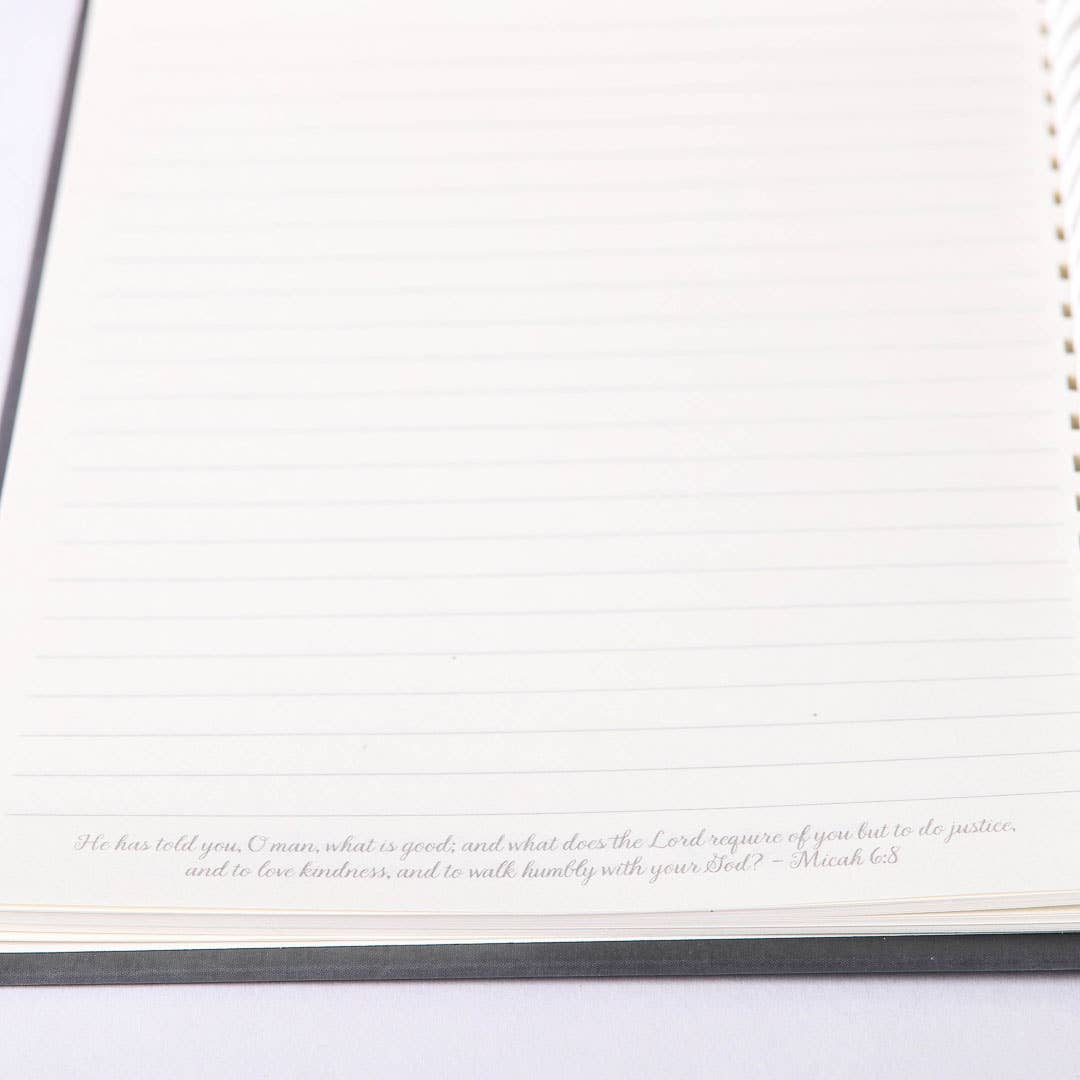 He has told you, O man, what is good; and what does the Lord require of you but to do justice,
and to love kindness, and to walk humbly with your God? – Micah 6:8